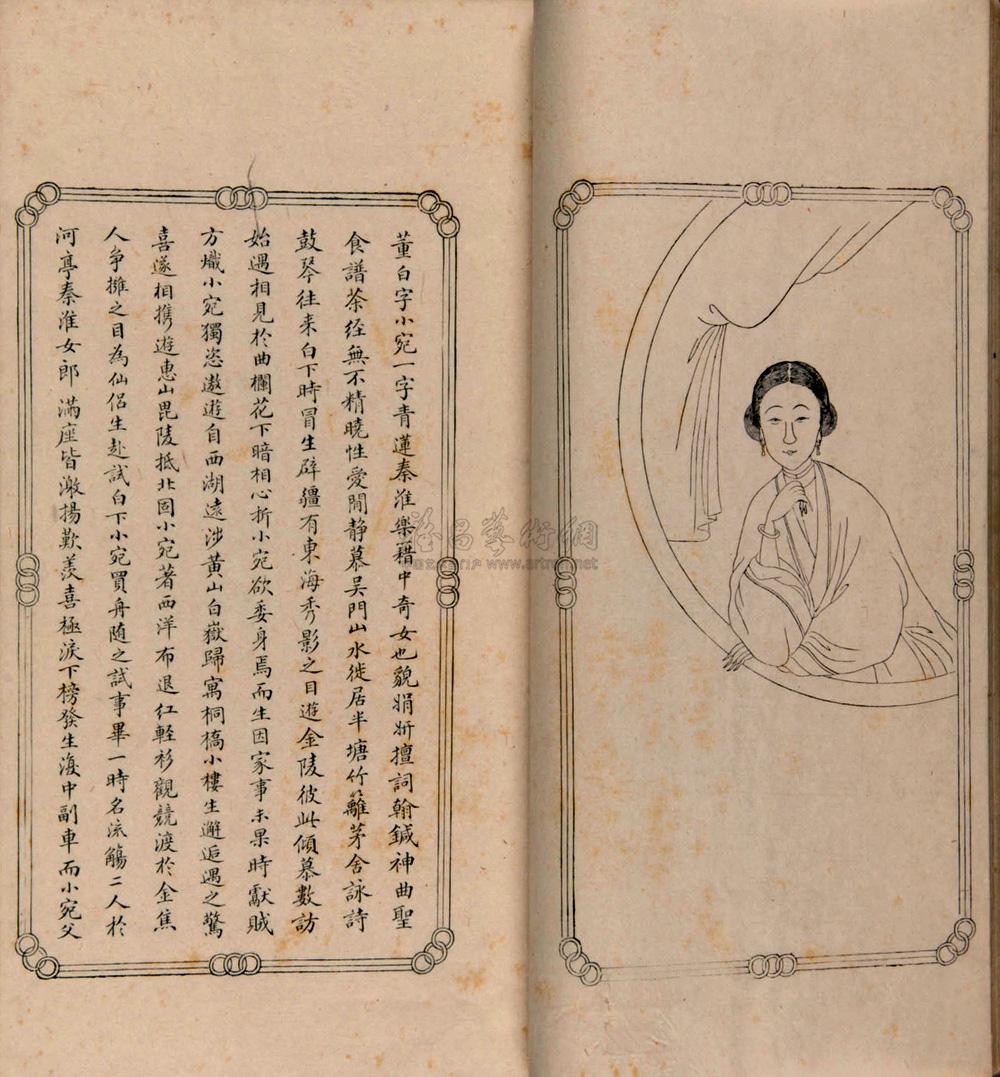 董白字小宛一字青蓮秦淮樂籍中奇女也貌娟妍擅詞翰鍼神曲聖
食譜茶經無不精曉性愛閒靜慕吴門山水徙居半塘竹籬茅舍詠詩
鼓琴往来白下時冒生辟疆有東海秀影之目遊金陵彼此傾慕數訪
始遇相見於曲欄花下暗相心折小宛欲委身焉而生因家事未果時獻賊
方熾小宛獨恣遨遊自西湖遠涉黄山白嶽歸寓桐橋小樓生邂逅遇之驚
喜遂相携遊惠山毘陵抵北固小宛著西洋布退红輕衫觀競渡於金焦
人争擁之目為仙侣生赴試白下小宛買舟随之試事畢一時名流觴二人於
河亭秦淮女郎滿座皆激揚歎羡喜極淚下榜發生復中副車而小宛父
藝術網
www.artron.net